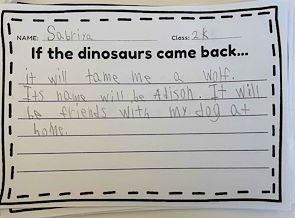 NAME: Sabrina Class: 2K
If the dinosaurs came back...
it will tame me a wolf.
Its name will be Adison. It will
be friends with my dog at
home.